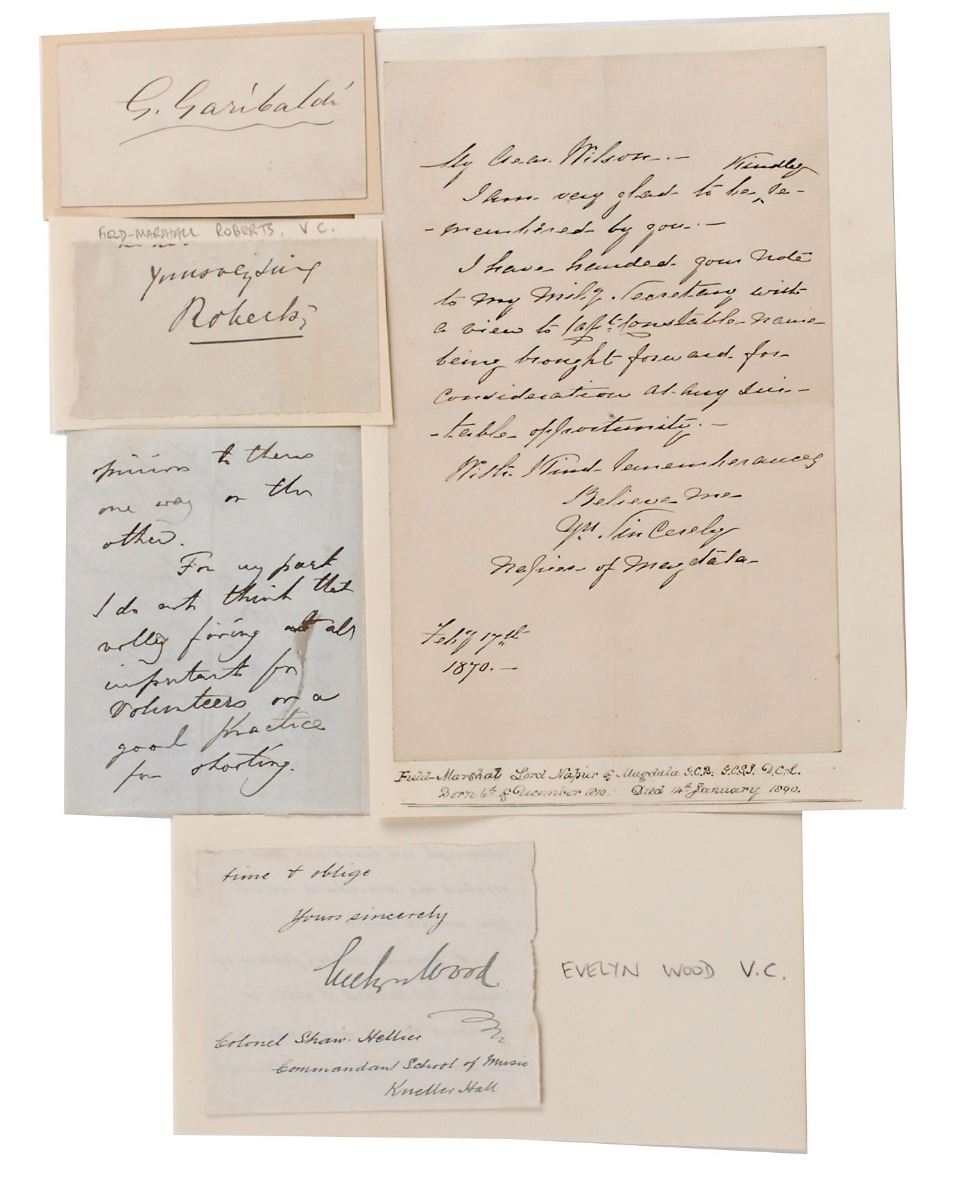 G. Garibaldi
FIELD-MARSHALL ROBERTS, V.C.
Yours very sincy
Roberts
opinion to them
one way or the
other.
For my part
I do not think that
volley firing at all
important for
Volunteers or a
good practice
for shooting.
My dear Wilson.-
Kindly
I am very glad to be re-
-membered by you.-
I have handed your note
to my Mily. Secretary with
a view to Capt. Constable name
being brought forward for
consideration at any sui-
-table opportunity.-
With Kind remembrances
Believe me
Yrs. Sincerely
Napier of Magdala
Feby 17th
1870.-
Field-Marshal Lord Napier of Magdala G.C.B. G.C.S.I. D.C.L.
Born 6th of December 1810. Died 14th January 1890.
time & oblige
Yours sincerely
Evelyn Wood
Colonel Shaw-Hellier
Commandant School of Music
Kneller Hall
EVELYN WOOD V.C.